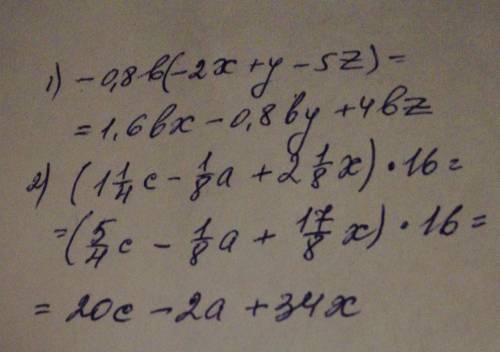 1) -0,8b(-2x+y-5z)=
=1,6bx-0,8by+4bz
2) (1 1/4 c - 1/8 a + 2 1/8 x) · 16 =
=(5/4 c - 1/8 a + 17/8 x) · 16 =
= 20c - 2a + 34x